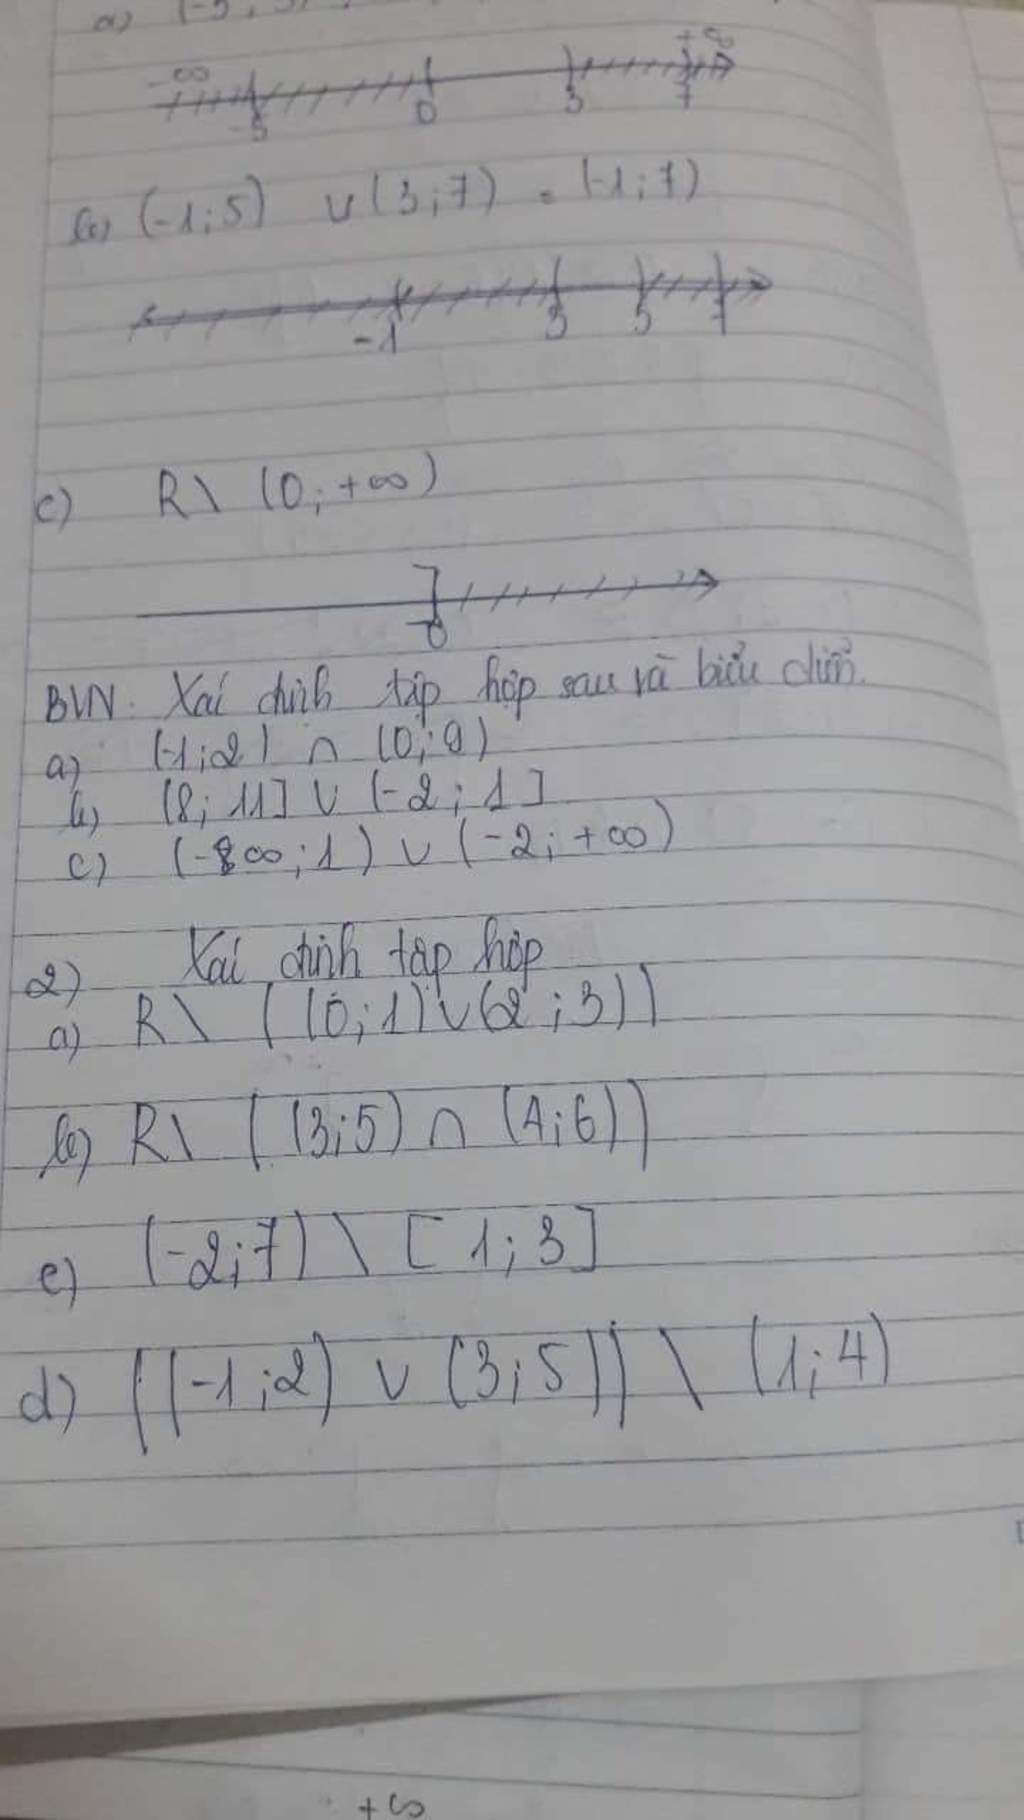 a) (-5; 3)
-∞ -5 0 3 7 +∞
b) (-1; 5) ∪ (3; 7) = (-1; 7)
-1 3 5 7
c) R \ (0; +∞)
0
BVN: Xác định tập hợp sau và biểu diễn.
a) (-1; 2) ∩ (0; 9)
b) (8; 11] ∪ (-2; 1]
c) (-∞; 1) ∪ (-2; +∞)
2) Xác định tập hợp
a) R \ ((0; 1) ∪ (2; 3))
b) R \ ((3; 5) ∩ (4; 6))
c) (-2; 7) \ [1; 3]
d) ((-1; 2) ∪ (3; 5)) \ (1; 4)
+∞